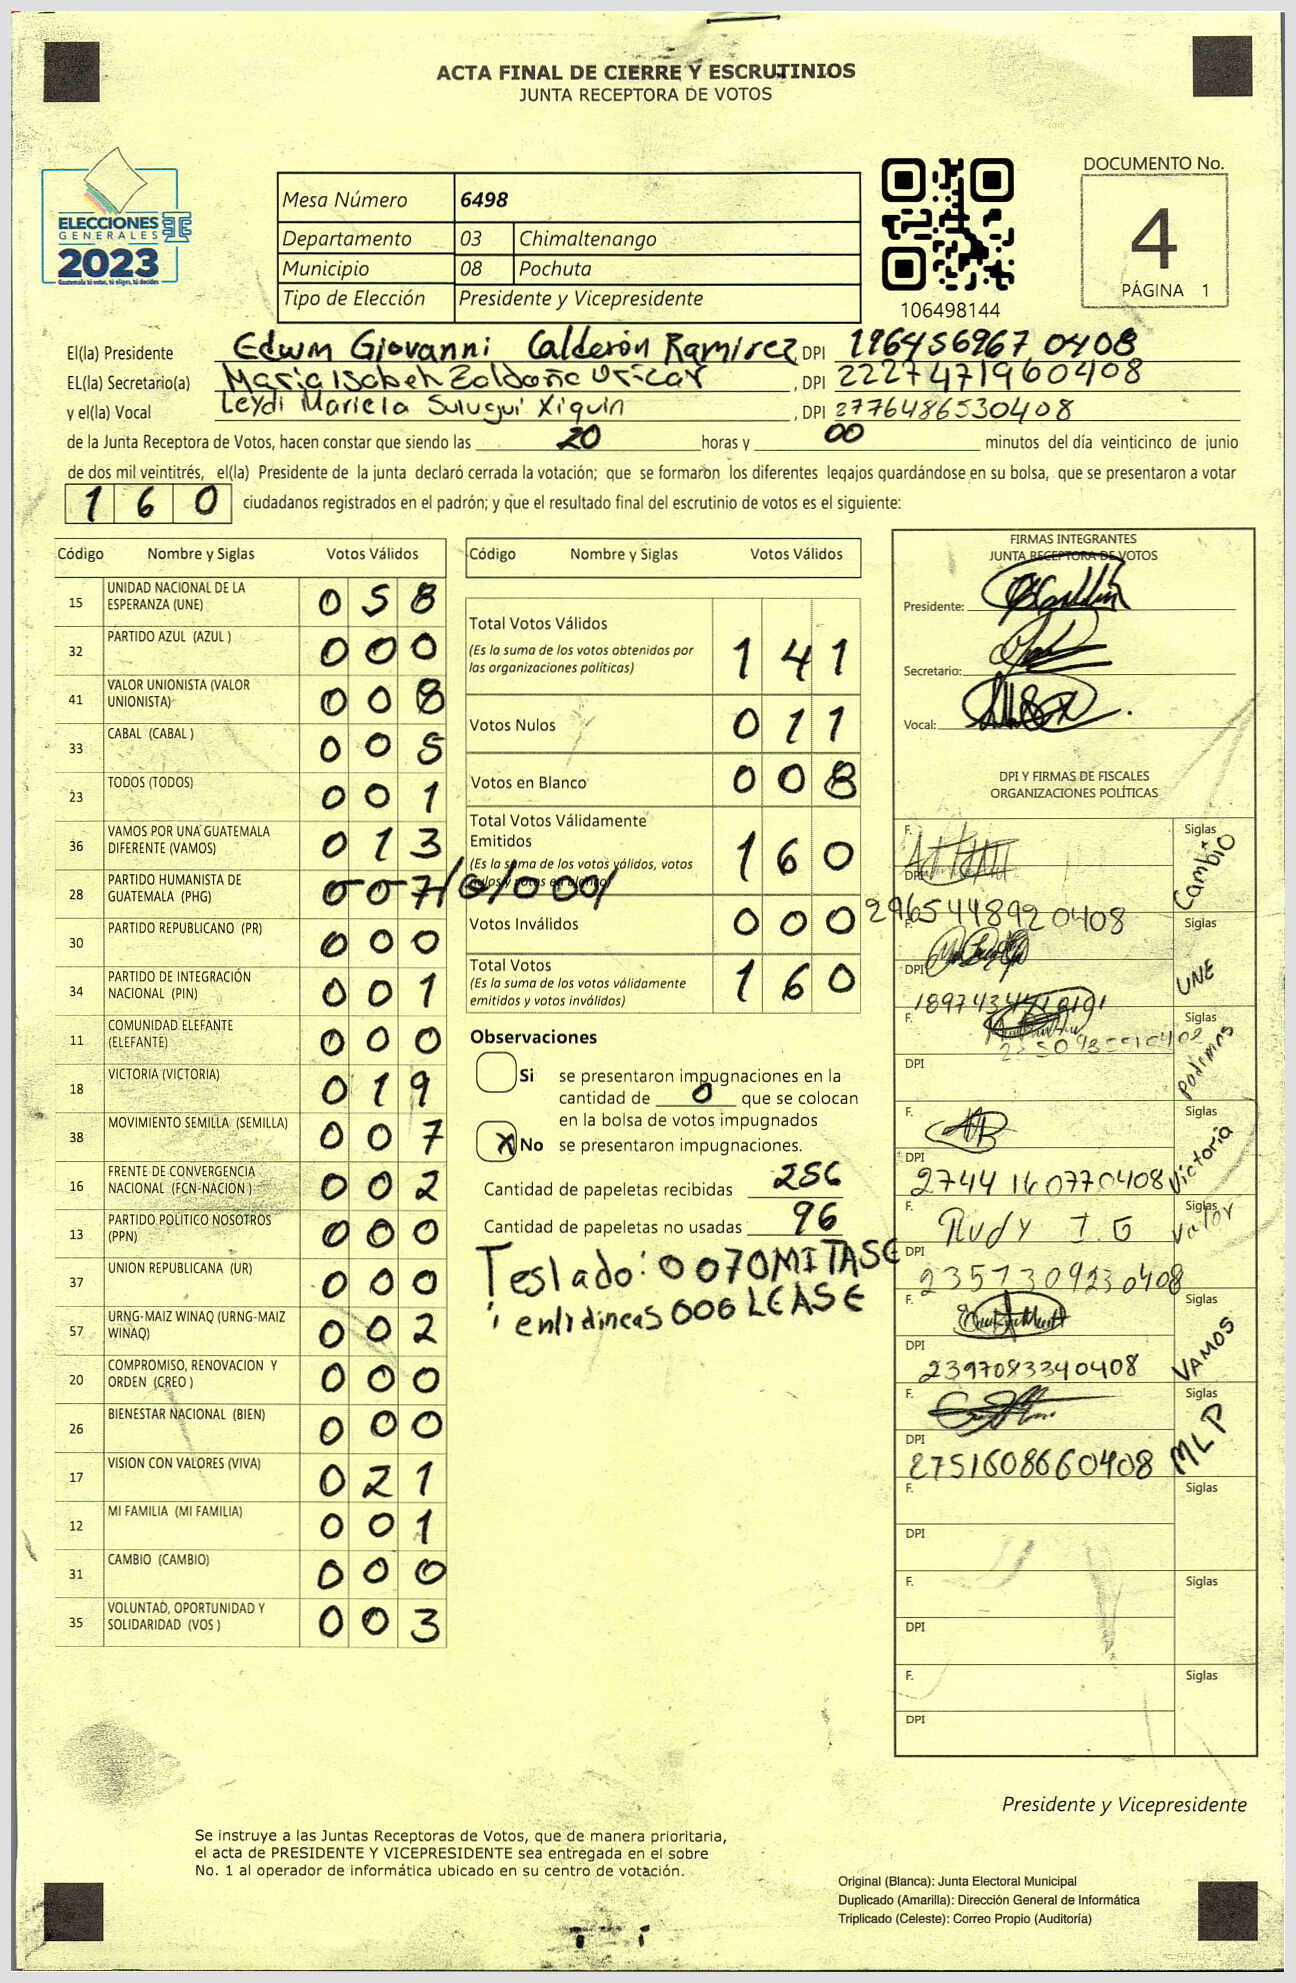 ACTA FINAL DE CIERRE Y ESCRUTINIOS
JUNTA RECEPTORA DE VOTOS
ELECCIONES
GENERALES
2023
Guatemala tú votas, tú eliges, tú decides
Mesa Número 6498
Departamento 03 Chimaltenango
Municipio 08 Pochuta
Tipo de Elección Presidente y Vicepresidente
106498144
DOCUMENTO No.
4
PÁGINA 1
El(la) Presidente Edwin Giovanni Calderón Ramirez, DPI 1964569670408
EL(la) Secretario(a) Maria Isabel, DPI 2227471960408
y el(la) Vocal Leydi Mariela Suluguí Xiquin, DPI 2776486530408
de la Junta Receptora de Votos, hacen constar que siendo las 20 horas y 00 minutos del día veinticinco de junio
de dos mil veintitrés, el(la) Presidente de la junta declaró cerrada la votación; que se formaron los diferentes legajos guardándose en su bolsa, que se presentaron a votar
160 ciudadanos registrados en el padrón; y que el resultado final del escrutinio de votos es el siguiente:
Código Nombre y Siglas Votos Válidos
15 UNIDAD NACIONAL DE LA ESPERANZA (UNE) 058
32 PARTIDO AZUL (AZUL ) 000
41 VALOR UNIONISTA (VALOR UNIONISTA) 008
33 CABAL (CABAL ) 005
23 TODOS (TODOS) 001
36 VAMOS POR UNA GUATEMALA DIFERENTE (VAMOS) 013
28 PARTIDO HUMANISTA DE GUATEMALA (PHG) 007/0/001
30 PARTIDO REPUBLICANO (PR) 000
34 PARTIDO DE INTEGRACIÓN NACIONAL (PIN) 001
11 COMUNIDAD ELEFANTE (ELEFANTE) 000
18 VICTORIA (VICTORIA) 019
38 MOVIMIENTO SEMILLA (SEMILLA) 007
16 FRENTE DE CONVERGENCIA NACIONAL (FCN-NACION ) 002
13 PARTIDO POLITICO NOSOTROS (PPN) 000
37 UNION REPUBLICANA (UR) 000
57 URNG-MAIZ WINAQ (URNG-MAIZ WINAQ) 002
20 COMPROMISO, RENOVACION Y ORDEN (CREO ) 000
26 BIENESTAR NACIONAL (BIEN) 000
17 VISION CON VALORES (VIVA) 021
12 MI FAMILIA (MI FAMILIA) 001
31 CAMBIO (CAMBIO) 000
35 VOLUNTAD, OPORTUNIDAD Y SOLIDARIDAD (VOS ) 003
Código Nombre y Siglas Votos Válidos
Total Votos Válidos
(Es la suma de los votos obtenidos por las organizaciones políticas) 141
Votos Nulos 011
Votos en Blanco 008
Total Votos Válidamente Emitidos
(Es la suma de los votos válidos, votos nulos y votos en blanco) 160
Votos Inválidos 000
Total Votos
(Es la suma de los votos válidamente emitidos y votos inválidos) 160
Observaciones
Si se presentaron impugnaciones en la
cantidad de 0 que se colocan
en la bolsa de votos impugnados
X No se presentaron impugnaciones.
Cantidad de papeletas recibidas 256
Cantidad de papeletas no usadas 96
Teslado: 007 OMITASE
i entrelineas 006 LEASE
FIRMAS INTEGRANTES
JUNTA RECEPTORA DE VOTOS
Presidente:
Secretario:
Vocal:
DPI Y FIRMAS DE FISCALES
ORGANIZACIONES POLÍTICAS
F. Siglas Cambio
DPI 2965448920408
F. Siglas UNE
DPI
F. Siglas Podemos
DPI
F. Siglas Victoria
DPI 2744160770408
F. Rudy I. G Siglas Valor
DPI 2357309230408
F. Siglas VAMOS
DPI 2397083340408
F. Siglas MLP
DPI 2751608660408
F. Siglas
DPI
F. Siglas
DPI
F. Siglas
DPI
Presidente y Vicepresidente
Se instruye a las Juntas Receptoras de Votos, que de manera prioritaria,
el acta de PRESIDENTE Y VICEPRESIDENTE sea entregada en el sobre
No. 1 al operador de informática ubicado en su centro de votación.
Original (Blanca): Junta Electoral Municipal
Duplicado (Amarilla): Dirección General de Informática
Triplicado (Celeste): Correo Propio (Auditoría)